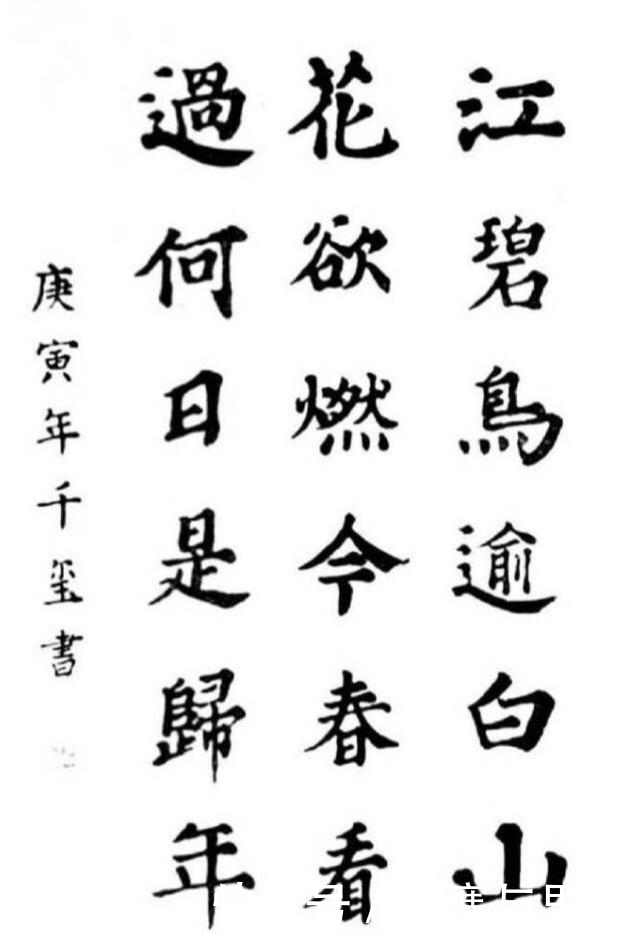 江碧鳥逾白山
花欲燃今春看
過何日是歸年
庚寅年千玺書